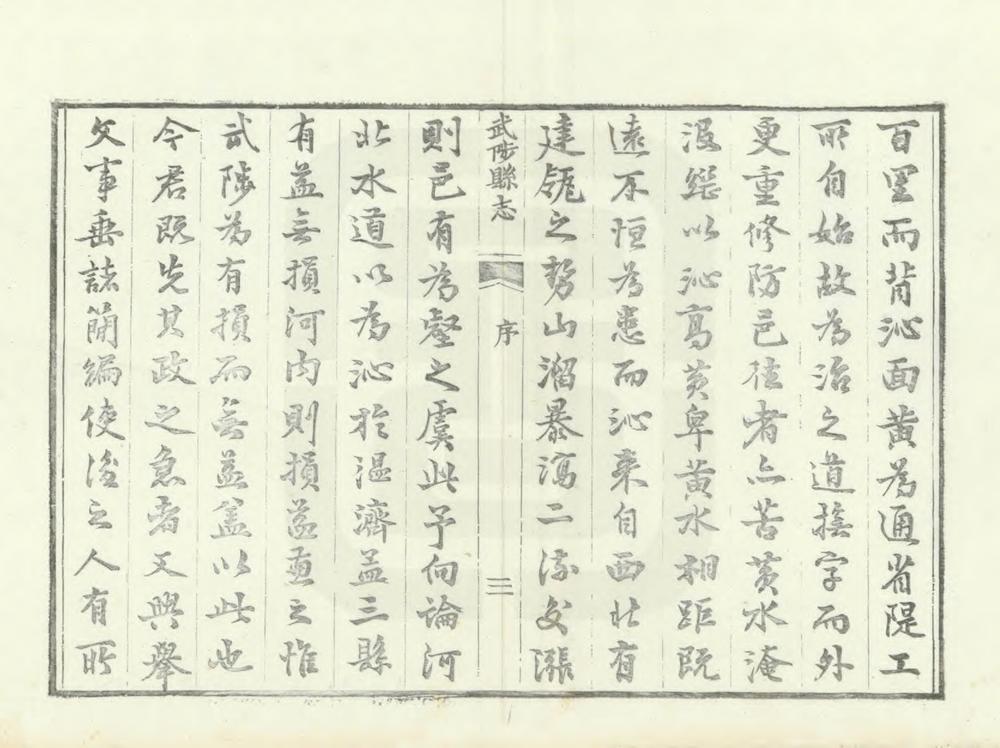 百里而背沁面黄為通省隄工
所自始故為治之道撫字而外
更重修防邑徃者亦苦黄水淹
沒繼以沁髙黄卑黄水相距既
遠不恒為患而沁来自西北有
建瓴之勢山溜暴瀉二流交漲
武陟縣志
序
三
則邑有為壑之虞此予向論河
北水道以為沁於温濟孟三縣
有益無損河内則損益亟之惟
武陟為有損而無益盖以此也
今君既先其政之急者又興舉
文事垂諸簡編使後之人有所